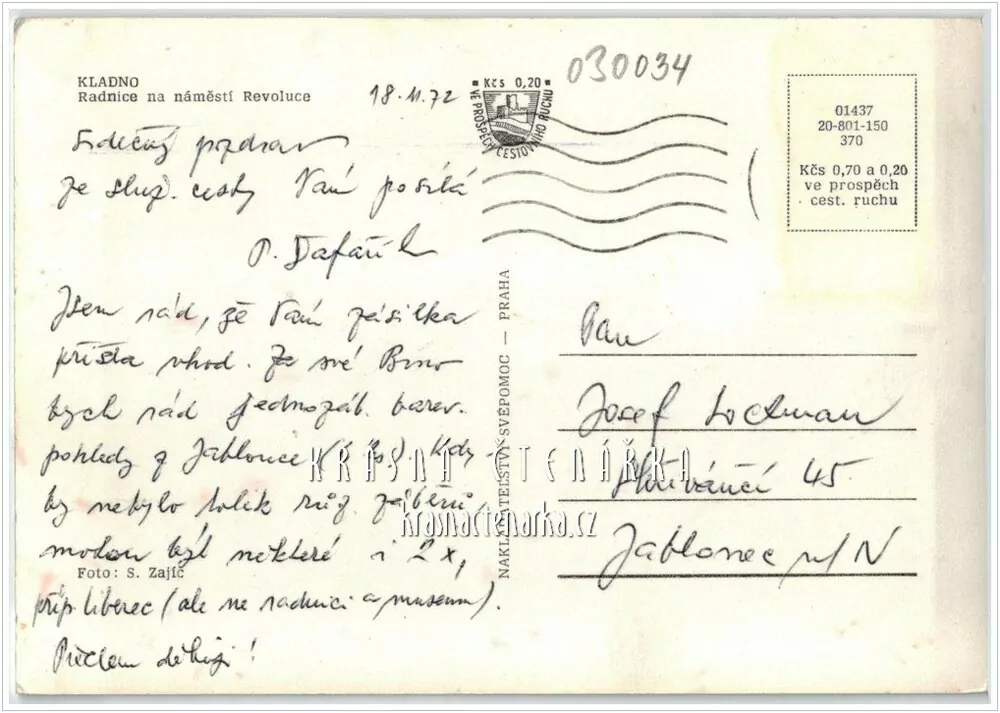 KLADNO
Radnice na náměstí Revoluce
18.11.72
Kčs 0,20
VE PROSPĚCH CESTOVNÍHO RUCHU
030034
01437
20-801-150
370
Kčs 0,70 a 0,20
ve prospěch
cest. ruchu
Srdečný pozdrav
ze služ. cesty Vám posílá
P. Šafařík
Jsem rád, že Vám zásilka
přišla vhod. Za své Brno
bych rád jednozáb. barev.
pohledy z Jablonce
by nebylo tolik růz. záběrů
mohou být některé i 2x,
příp. Liberec (ale ne radnici a museum).
Předem děkuji!
Foto: S. Zajíc
NAKLADATELSTVÍ SVÉPOMOC — PRAHA
Pan
Josef Loctman
45
Jablonec n/N
KRÁSNÁ ČTENÁŘKA
krasnactenarka.cz